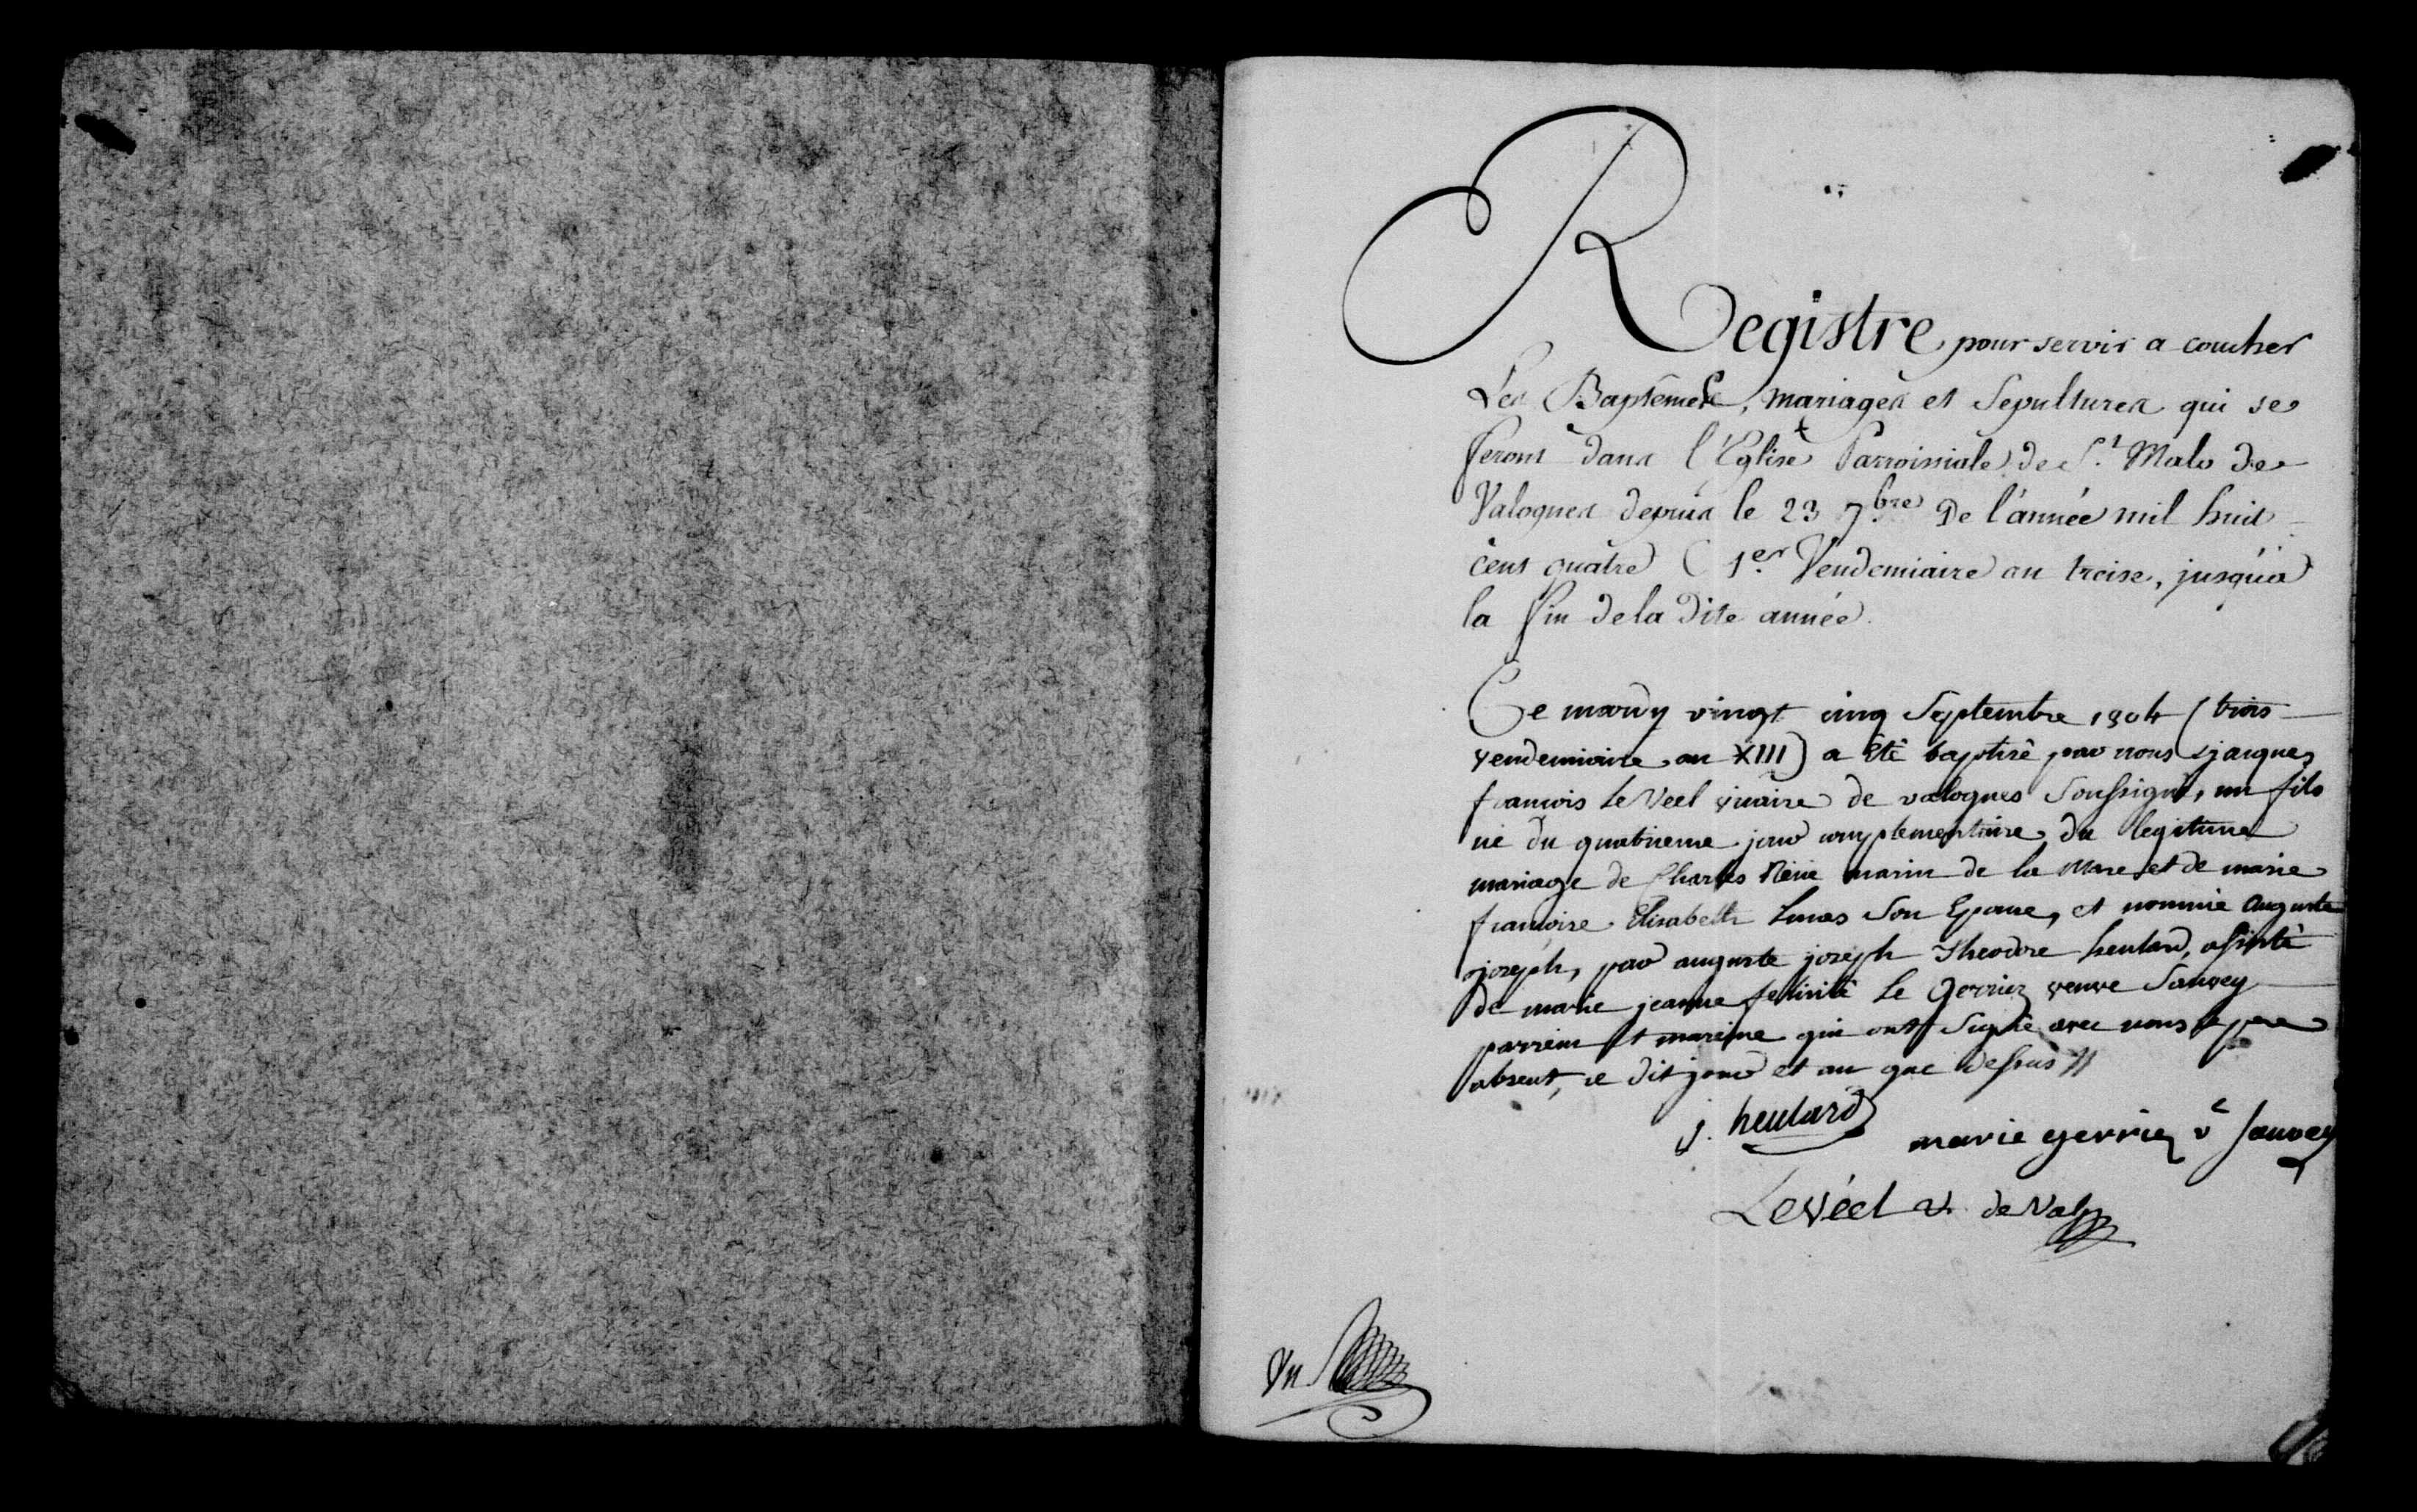 Registre pour servir a coucher
Les Baptêmes, mariages et Sepultures qui se
feront dans l'Eglise Parroissiale de St. Malo de
Valognes depuis le 23 7bre De l'année mil huit
cent quatre ( 1er. Vendemiaire an treise, jusqu'à
la fin de la dite année.
Ce mardy vingt cinq Septembre 1804 ( trois
vendemiaire an XIII ) a été baptisé par nous jacques
francois Le Veel vicaire de valognes Soussigné, un fils
né du quatrieme jour complementaire, du legitime
mariage de Charles Réné marin de la Mare et de marie
francoise Elisabeth Lucas Son Epouse, et nommé Auguste
joseph, par auguste joseph Theodore heulard, assisté
de marie jeanne felicité Le Gerrier veuve Sauvey
parrein et mareine qui ont Signé avec nous le pere
absent, ce dit jour et an que dessus //
j. heulard
marie gerrier ve Sauvey
LeVéel v. de Val